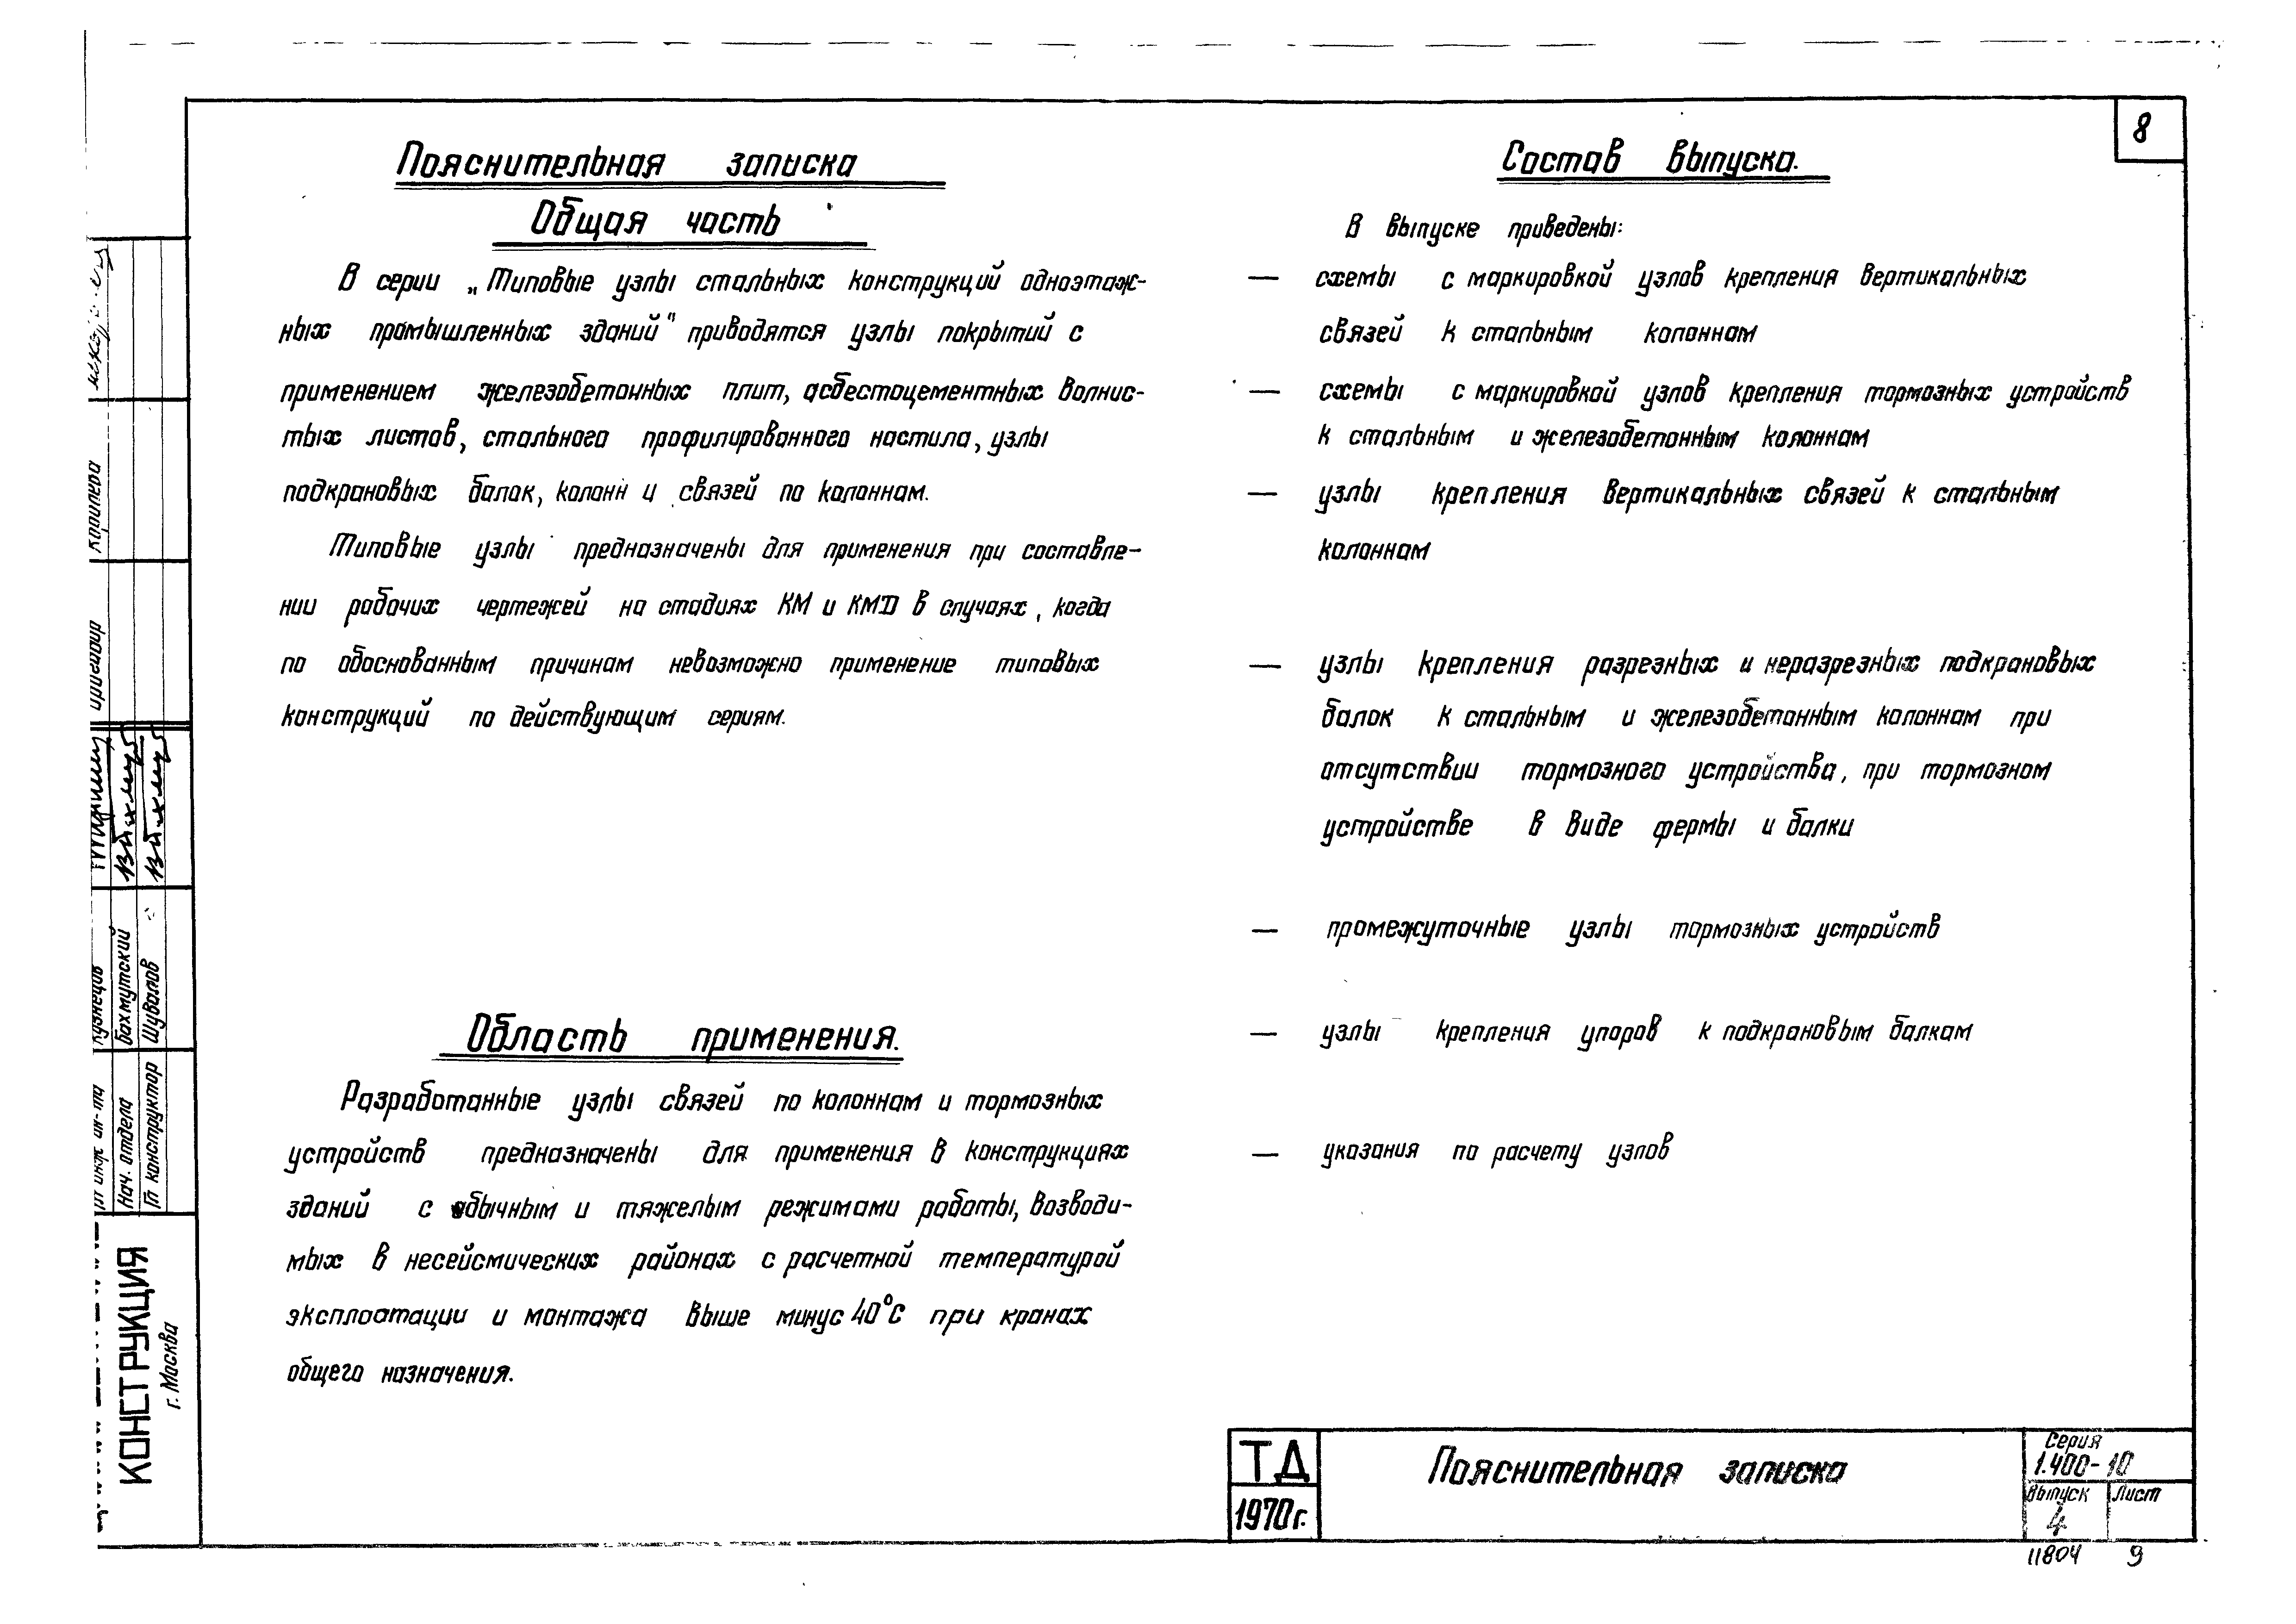 8
Пояснительная записка
Общая часть
В серии „Типовые узлы стальных конструкций одноэтаж-
ных промышленных зданий" приводятся узлы покрытий с
применением железобетонных плит, асбестоцементных волнис-
тых листов, стального профилированного настила, узлы
подкрановых балок, колонн и связей по колоннам.
Типовые узлы предназначены для применения при составле-
нии рабочих чертежей на стадиях КМ и КМД в случаях, когда
по обоснованным причинам невозможно применение типовых
конструкций по действующим сериям.
Область применения.
Разработанные узлы связей по колоннам и тормозных
устройств предназначены для применения в конструкциях
зданий с обычным и тяжелым режимами работы, возводи-
мых в несейсмических районах с расчетной температурой
эксплоатации и монтажа выше минус 40°С при кранах
общего назначения.
Состав выпуска.
В выпуске приведены:
— схемы с маркировкой узлов крепления вертикальных
связей к стальным колоннам
— схемы с маркировкой узлов крепления тормозных устройств
к стальным и железобетонным колоннам
— узлы крепления вертикальных связей к стальным
колоннам
— узлы крепления разрезных и неразрезных подкрановых
балок к стальным и железобетонным колоннам при
отсутствии тормозного устройства, при тормозном
устройстве в виде фермы и балки
— промежуточные узлы тормозных устройств
— узлы крепления упоров к подкрановым балкам
— указания по расчету узлов
ТД
1970г.
Пояснительная записка
Серия
1.400-10
Выпуск Лист
4
11804 9
Кузнецов
Нач. отдела Бахмутский
Гл конструктор Шувалов
КОНСТРУКЦИЯ
г. Москва